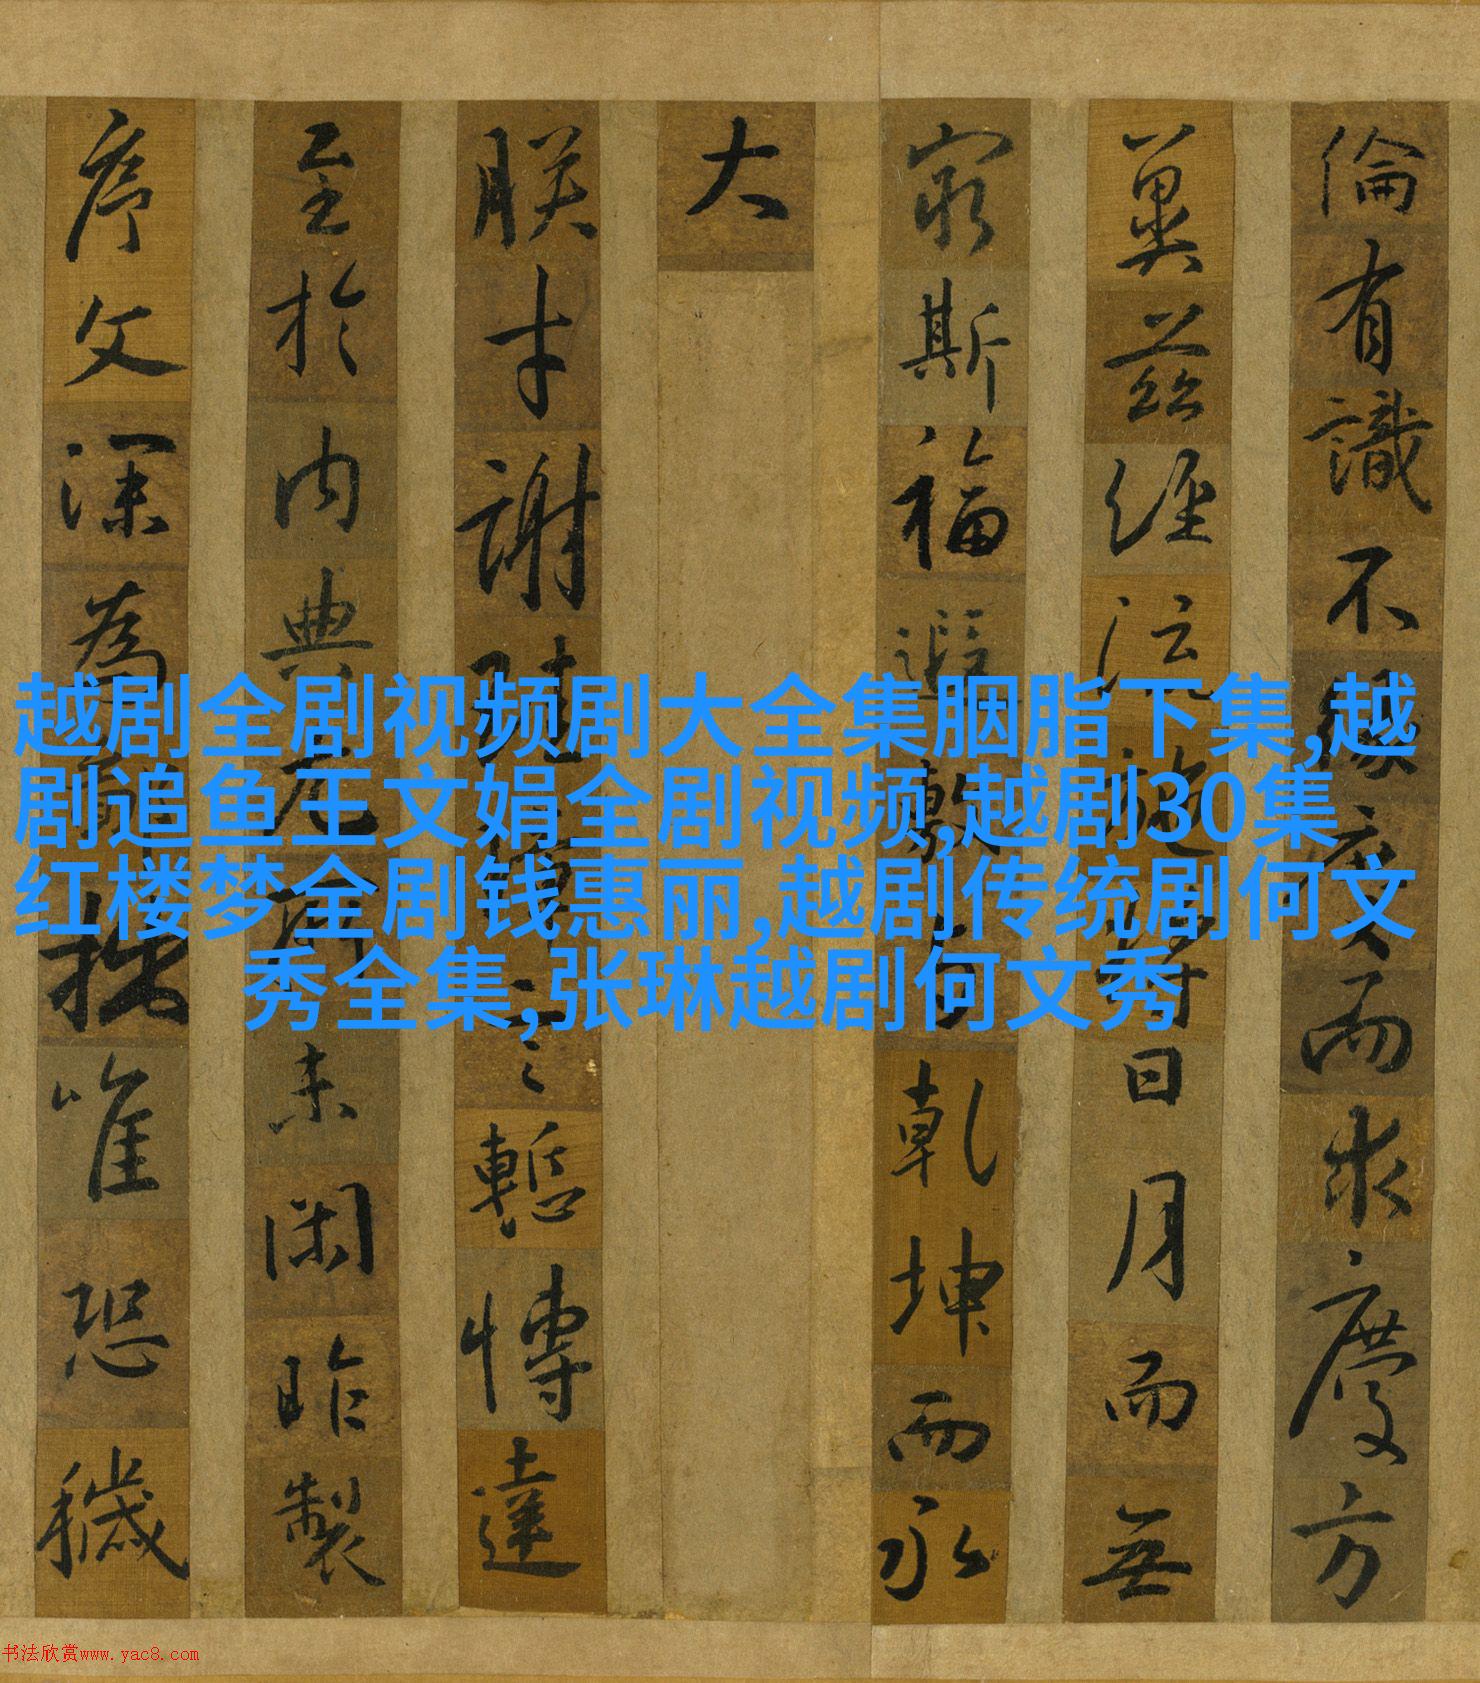 越剧全剧视频剧大全集胭脂下集,越
剧追鱼王文娟全剧视频,越剧30集
红楼梦全剧钱惠丽,越剧传统剧何文
秀全集,张琳越剧何文秀
倫有識不緣慶而求慶方
冀茲經流施將日月而無
窮斯福遐敷乾坤而永
大
朕才謝珪慙博達
至於內典尤所未閑昨製
序文深為拙唯恐穢
书法欣赏www.yac8.com